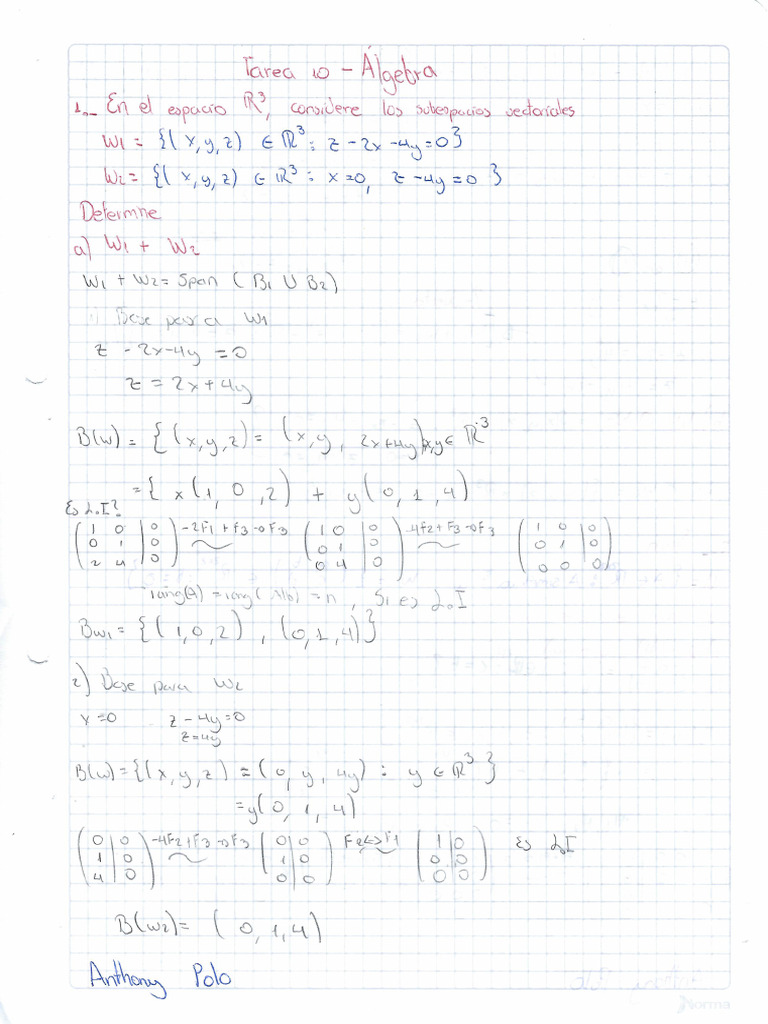 Tarea 10 - Álgebra
1.- En el espacio ℝ³, considere los subespacios vectoriales
W1 = {(x,y,z) ∈ ℝ³: z - 2x - 4y = 0}
W2 = {(x,y,z) ∈ ℝ³: x=0, z - 4y = 0}
Determne
a) W1 + W2
W1 + W2 = Span (B1 ∪ B2)
1) Base para W1
z - 2x - 4y = 0
z = 2x + 4y
B(w) = {(x,y,z) = (x,y, 2x+4y) x,y ∈ ℝ³
= { x(1,0,2) + y(0,1,4)
Es L.I?
(1 0 | 0) -2F1+F3→F3 (1 0 | 0) -4F2+F3→F3 (1 0 | 0)
(0 1 | 0) (0 1 | 0) (0 1 | 0)
(2 4 | 0) (0 4 | 0) (0 0 | 0)
rang(A) = rang(A|b) = n, Si es L.I
Bw1 = {(1,0,2), (0,1,4)}
2) Base para W2
x=0 z - 4y = 0
z=4y
B(w) = {(x,y,z) = (0,y,4y) : y ∈ ℝ³}
= y(0,1,4)
(0 | 0) -4F2+F3→F3 (0 | 0) F2↔F1 (1 | 0) Es L.I
(1 | 0) (1 | 0) (0 | 0)
(4 | 0) (0 | 0) (0 | 0)
B(w2) = (0,1,4)
Anthony Polo
Norma